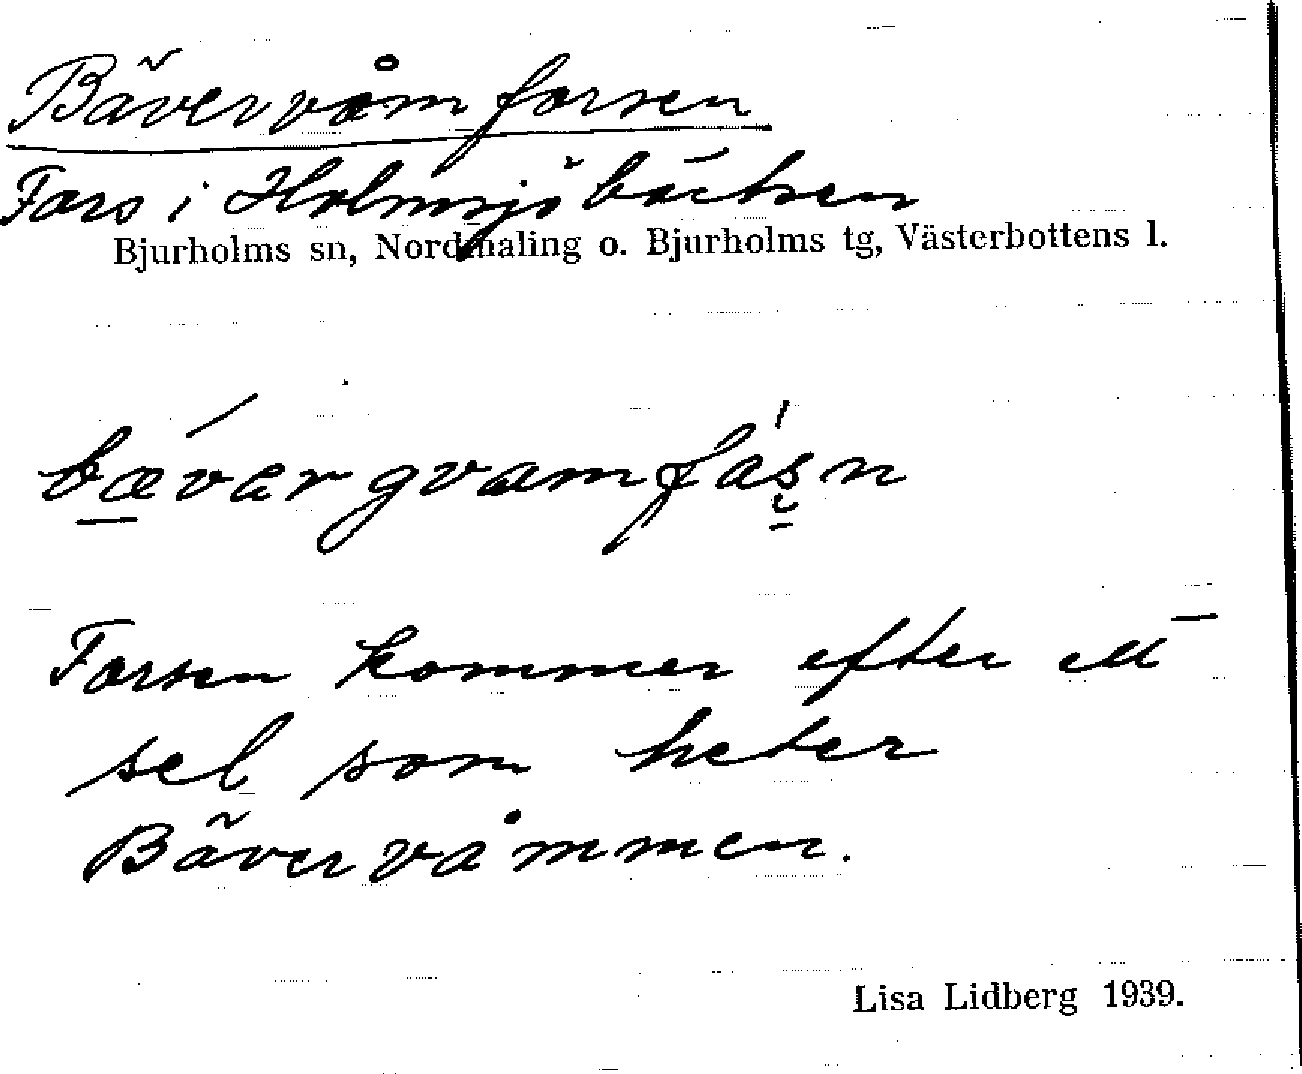 Bävervåmforsen
Fors i Holmsjöbäcken
Bjurholms sn, Nordmaling o. Bjurholms tg, Västerbottens l.
bævargvamfåsn
Forsen kommer efter ett
sel som heter
Bävervåmmen.
Lisa Lidberg 1939.